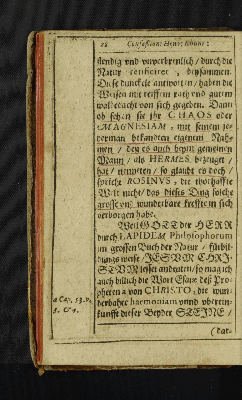 28 Confession: Henr: Khunr:
stendig und unverbrenlich / durch die
Natur reificiret, beysammen.
Diese dunckele antworten / haben die
Weisen mit reiffem rath und gutem
walbedacht von sich gegeben. Dann
ob schon sie ihr CHAOS oder
MAGNESIAM, mit seinem je-
derman bekandten eigenem Nah-
men / den es auch beym gemeinen
Mann / als HERMES bezeuget /
hat / nenneten / so glaubt es doch /
spricht ROSINUS, die thorhafftige
Welt nicht / das dieses Ding solche
grosse und wunderbare kreffte in sich
verborgen habe.
Weil GOTT der HERR
durch LAPIDEM Philosophorum
im grossen Buch der Natur / fürbil-
dungs weise / JESUM CHRI-
STUM lesset andeuten / so mag ich
auch billich die Wort Esaiæ des Pro-
pheten a von CHRISTO, die wun-
derbahre harmoniam unnd uberein-
kunfft dieser Beyder STEINE /
a Cap. 53. v.
(dar-